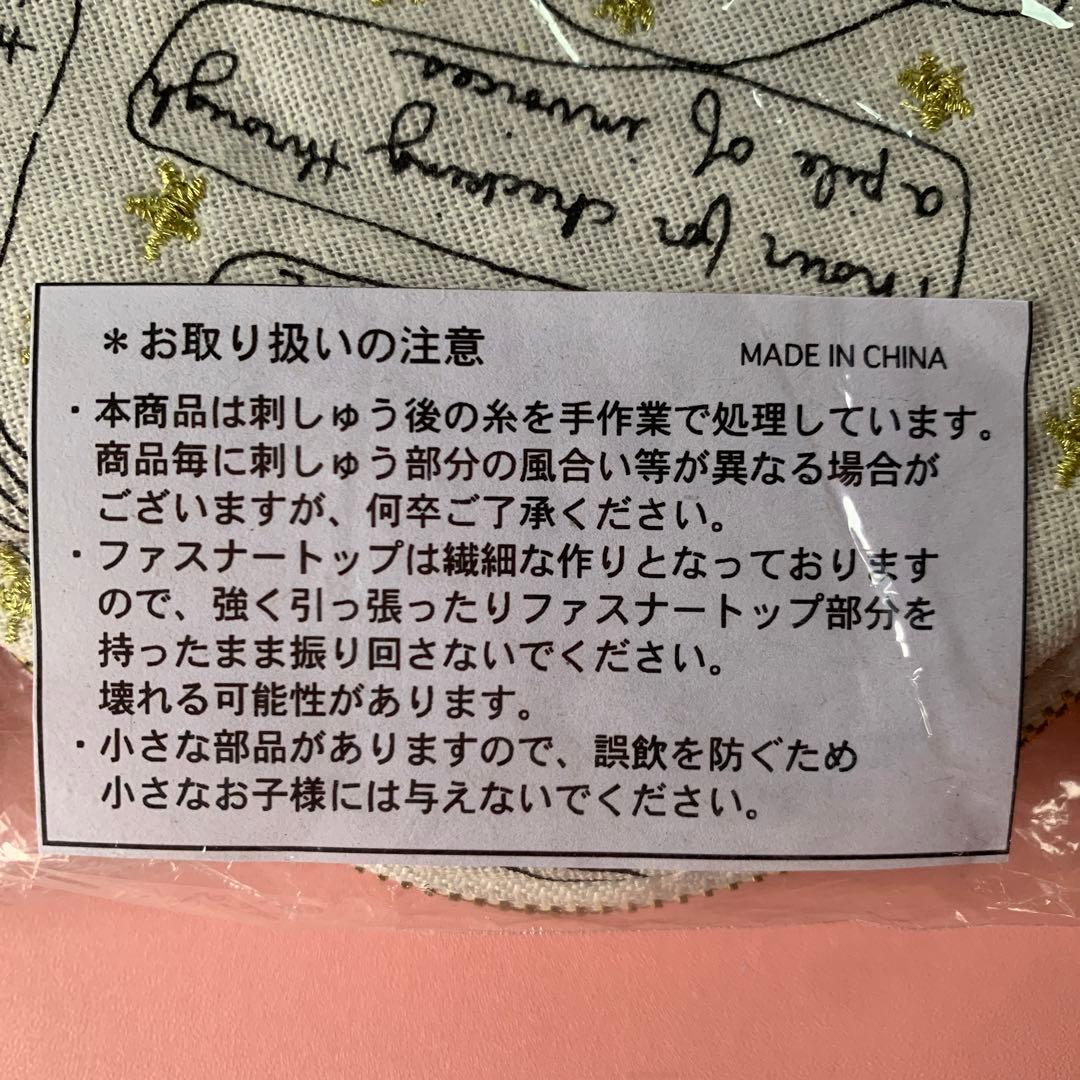 hour for checking through
a pile of invoices
＊お取り扱いの注意
MADE IN CHINA
・本商品は刺しゅう後の糸を手作業で処理しています。
商品毎に刺しゅう部分の風合い等が異なる場合が
ございますが、何卒ご了承ください。
・ファスナートップは繊細な作りとなっております
ので、強く引っ張ったりファスナートップ部分を
持ったまま振り回さないでください。
壊れる可能性があります。
・小さな部品がありますので、誤飲を防ぐため
小さなお子様には与えないでください。